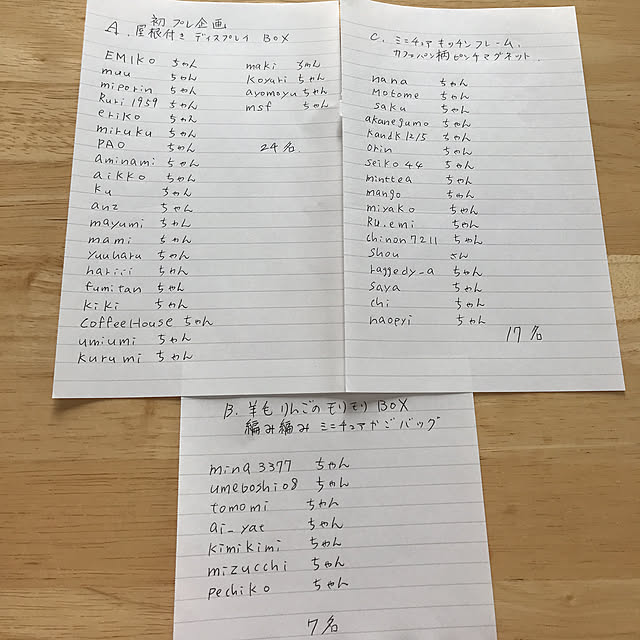 初プレ企画
A. 屋根付き ディスプレイ BOX
EMIKO ちゃん
muu ちゃん
miporin ちゃん
Ruri 1959 ちゃん
eriko ちゃん
miruku ちゃん
PAO ちゃん
aminami ちゃん
aikko ちゃん
ku ちゃん
anz ちゃん
mayumi ちゃん
mami ちゃん
yuuharu ちゃん
hariii ちゃん
fumitan ちゃん
kiki ちゃん
CoffeeHouse ちゃん
umiumi ちゃん
kurumi ちゃん
maki ちゃん
Koyuri ちゃん
ayomoyu ちゃん
msf ちゃん
24名
C. ミニチュア キッチンフレーム.
カフェパン柄 ピンチマグネット.
nana ちゃん
Motome ちゃん
saku ちゃん
akanegumo ちゃん
kandk1215 ちゃん
orin ちゃん
seiko 44 ちゃん
minttea ちゃん
mango ちゃん
miyako ちゃん
Ru.emi ちゃん
chinon7211 ちゃん
shou さん
raggedy_a ちゃん
saya ちゃん
chi ちゃん
naopyi ちゃん
17名
B. 羊毛りんごのモリモリ BOX
編み編み ミニチュアかごバッグ
mina3377 ちゃん
umeboshi08 ちゃん
tomomi ちゃん
ai_yat ちゃん
kimikimi ちゃん
mizucchi ちゃん
pechiko ちゃん
7名